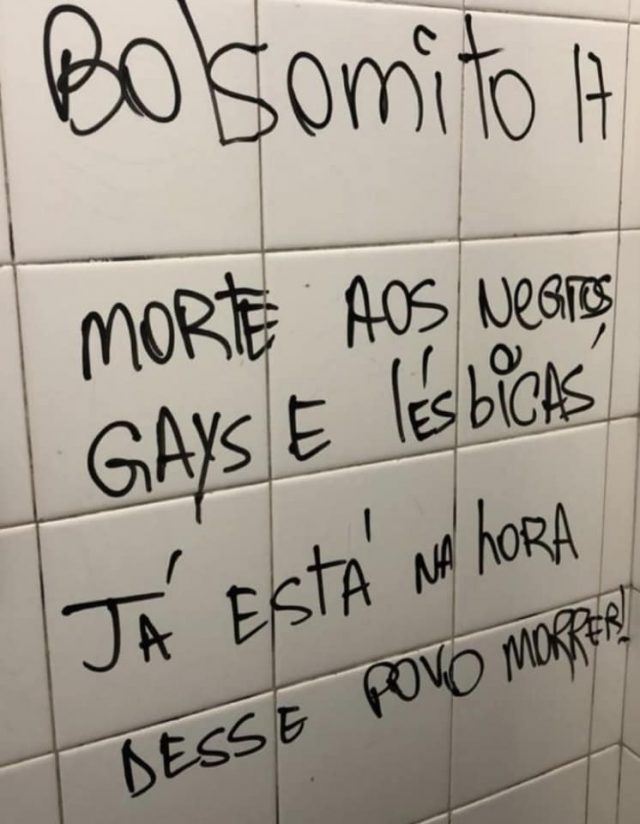 Bolsomito 17
MORTE AOS NEGROS,
GAYS E lÉsbiCAS
JÁ ESTÁ NA hORA
DESSE POVO MORRER!